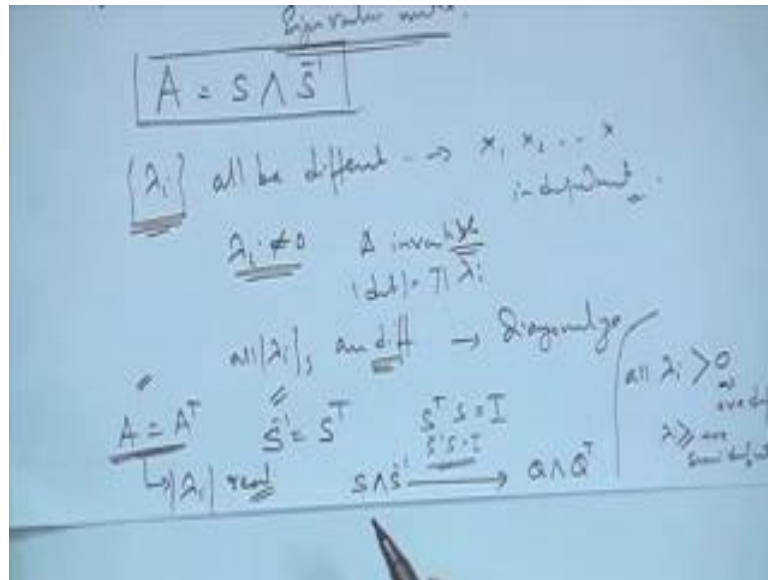 A = S Λ S⁻¹
{λᵢ} all be different → x₁ x₂ .. x
independent.
λᵢ ≠ 0 A invertible
|det| = π λᵢ
all |λᵢ|s are diff → Diagonalize
all λᵢ > 0
A = Aᵀ S⁻¹ = Sᵀ SᵀS = I
λ ≥
S⁻¹S = I
semi
↳ |λᵢ| real SΛS⁻¹ → QΛQᵀ